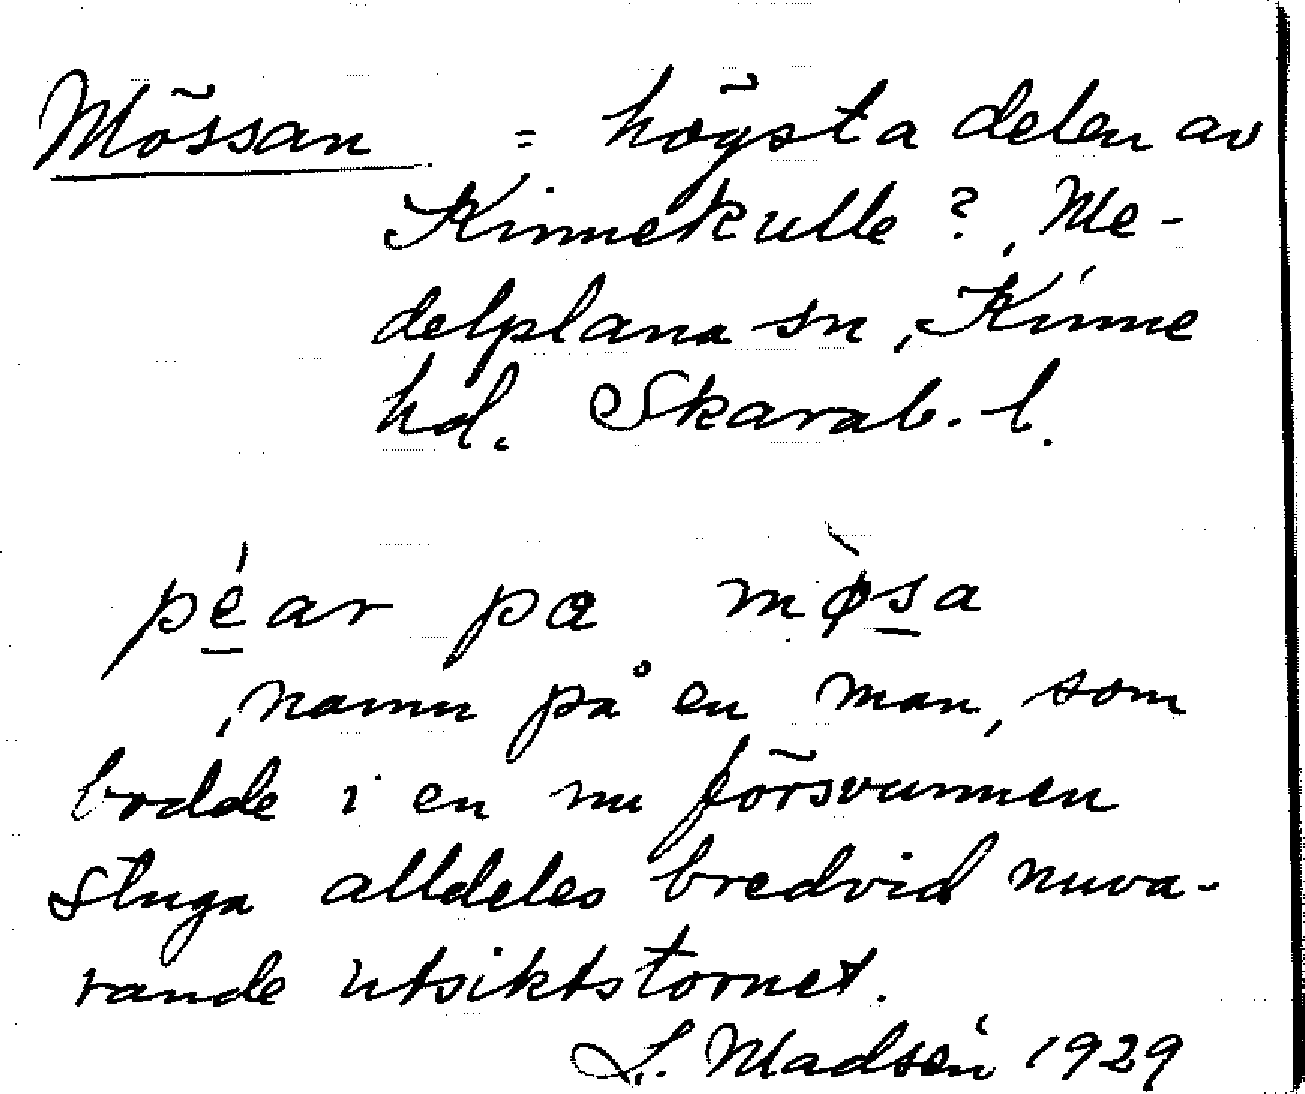 Mössan = högsta delen av
Kinnekulle?, Me-
delplana sn, Kinne
hd. Skarab. l.
péar pa mø̀sa
, namn på en man, som
bodde i en nu försvunnen
stuga alldeles bredvid nuva-
rande utsiktstornet.
L. Madsén 1929